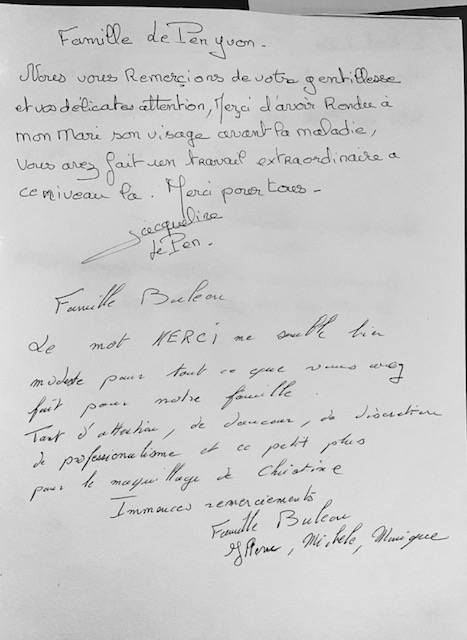 Famille de Pen yvon.
Nous vous Remerçions de votre gentillesse
et vos délicates attention, Merçi d'avoir Rendu à
mon Mari son visage avant la maladie,
Vous avez fait un travail extraordinaire a
ce niveau la. Merci pour tous -
Jacqueline
Le Pen.
Famille Buleou
Le mot MERCI me semble bien
modeste pour tout ce que vous avez
fait pour notre famille.
Tant d'attention, de douceur, de discretion
de professionalisme et ce petit plus
pour le maquillage de Christine
Immences remerciements
Famille Buleou
Michele, Monique